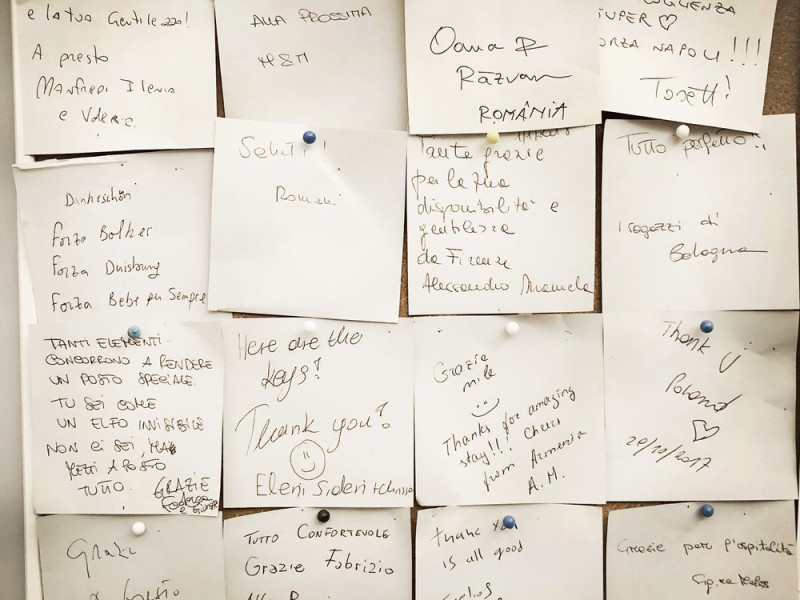 e la tua Gentilezza!
A presto
Manfredi Ilenia
e Valeria.
ALLA PROSSIMA
M&M
Oana R
Răzvan
ROMÂNIA
SUPER ♡
FORZA NAPOLI!!!
Dankeschön
Forza Bolker
Forza Duisburg
Forza Bebe per Sempre
Saluti!
Romani
Tante grazie
per la tua
disponibilità e
gentilezza
da Firenze
Alessandro Manuela
Tutto perfetto!!
I ragazzi di
Bologna
TANTI ELEMENTI
CONCORRONO A RENDERE
UN POSTO SPECIALE.
TU SEI COME
UN ELFO INVISIBILE
NON CI SEI, MA
METTI A POSTO
TUTTO. GRAZIE
Here are the
keys!
Thank you!
Eleni Sideri
Grazie
mile
Thanks for amazing
stay!!! Cheers
from Armenia
A. M.
Thank U
Poland
♡
29/10/2017
Grazie
TUTTO CONFORTEVOLE
Grazie Fabrizio
Thank you
is all good
Grazie per l'ospitalità